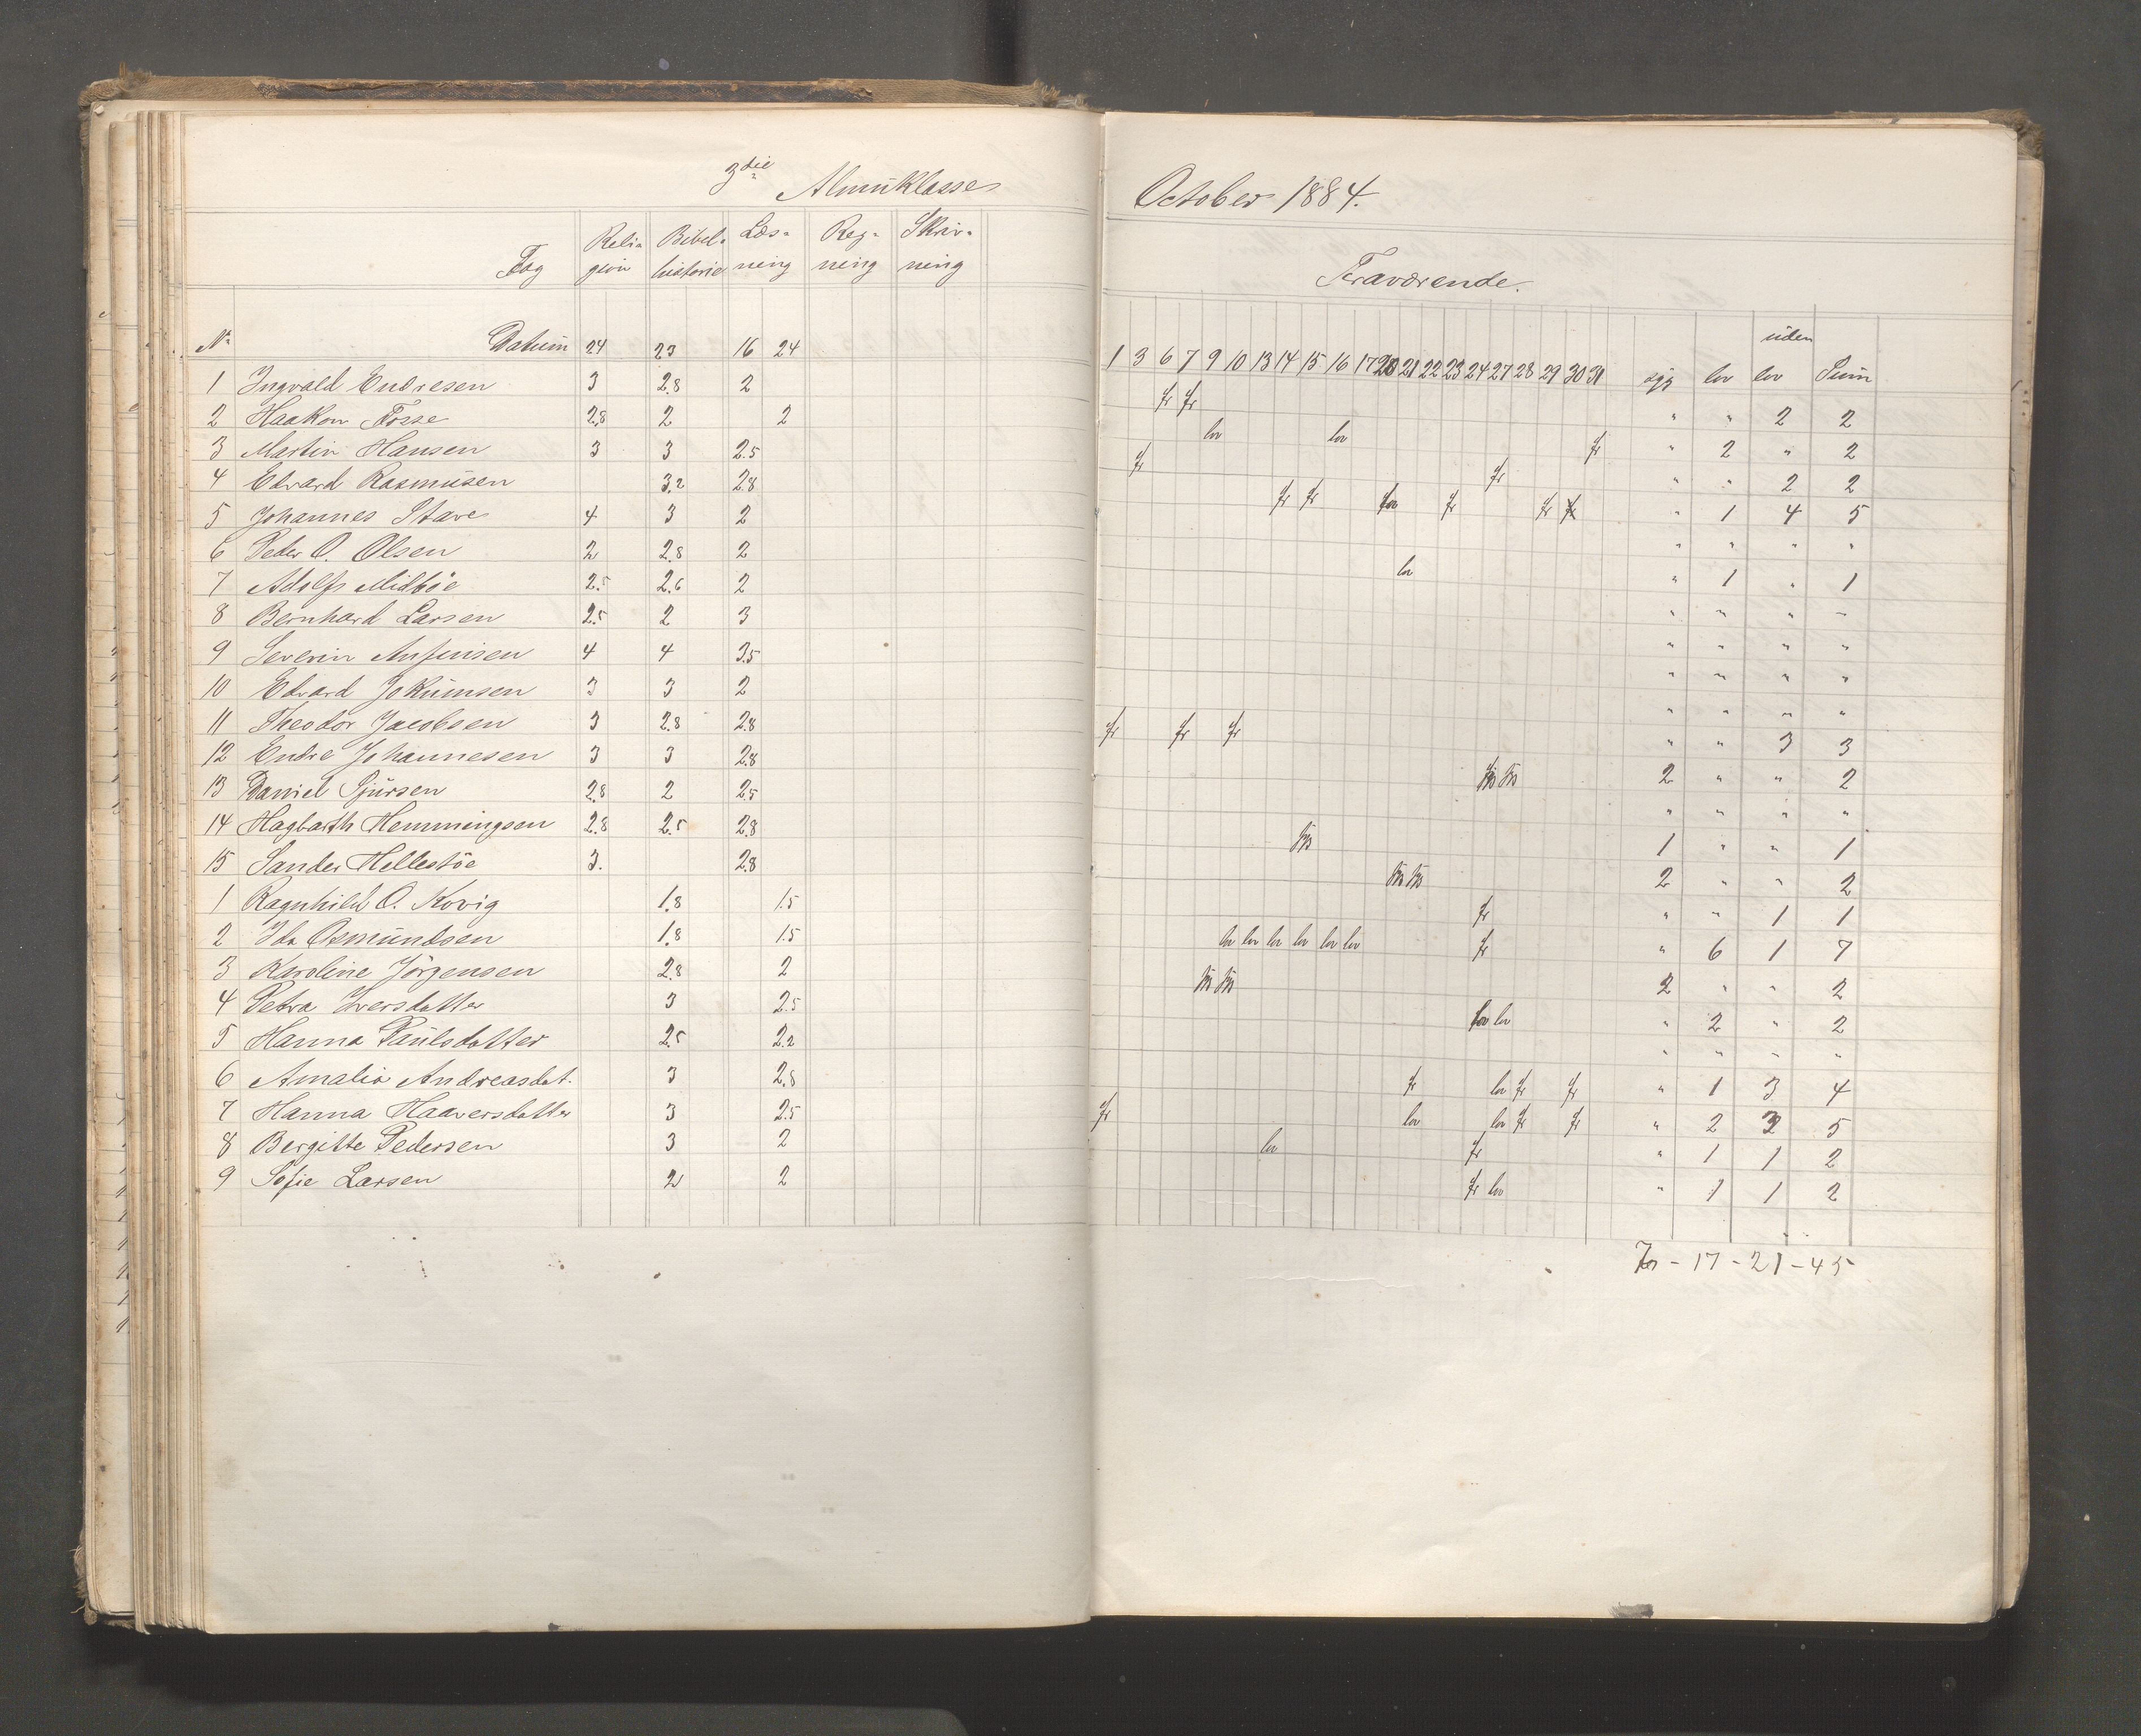 3die Almuklasse
Fag Reli- gion Bibel- historie Læs- ning Reg- ning Skriv- ning
No Datum 24 23 16 24
1 Ingvald Endresen 3 2.8 2
2 Haakon Fosse 2.8 2 2
3 Martin Hansen 3 3 2.5
4 Edvard Rasmusen 3.2 2.8
5 Johannes Stave 4 3 2
6 Peder O. Olsen 2 2.8 2
7 Adolf Midböe 2.5 2.6 2
8 Bernhard Larsen 2.5 2 3
9 Severin 4 4 3.5
10 Edvard Jokumsen 3 3 2
11 Theodor Jacobsen 3 2.8 2.8
12 Endre Johannesen 3 3 2.8
13 Daniel Sjursen 2.8 2 2.5
14 Hagbarth Hemmingsen 2.8 2.5 2.8
15 Sander Hellestöe 3. 2.8
1 Ragnhild O. Kovig 1.8 1.5
2 Ida Osmundsen 1.8 1.5
3 Karoline Jörgensen 2.8 2
4 Petra Iversdatter 3 2.5
5 Hanna Paulsdatter 2.5 2.2
6 Amalia Andreasdat. 3 2.8
7 Hanna Haaversdatter 3 2.5
8 Bergitte Pedersen 3 2
9 Sofie Larsen 2 2
October 1884.
Fraværende.
1 3 6 7 9 10 13 14 15 16 17 20 21 22 23 24 27 28 29 30 31 syg lov uden lov Sum
fr fr " " 2 2
lov lov " 2 " 2
fr fr " " 2 2
fr fr fr lov fr fr " 1 4 5
" " " "
lov " 1 " 1
" " " "
" " " "
" " " "
" " " "
fr fr fr " " 3 3
2 " " 2
" " " "
1 " " 1
2 " " 2
fr " " 1 1
lov lov lov lov lov lov fr " 6 1 7
2 " " 2
lov lov " 2 " 2
" " " "
fr lov fr fr " 1 3 4
fr lov lov fr fr " 2 3 5
lov fr " 1 1 2
fr lov " 1 1 2
7 - 17 - 21 - 45